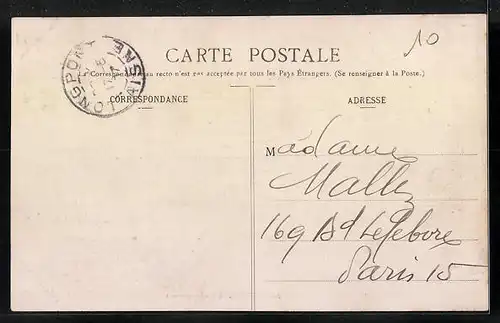 10
CARTE POSTALE
La Correspondance au recto n'est pas acceptée par tous les Pays Étrangers. (Se renseigner à la Poste.)
LONGPONT AISNE
CORRESPONDANCE
ADRESSE
Madame
Malley
169 Bd Lefebvre
Paris 15